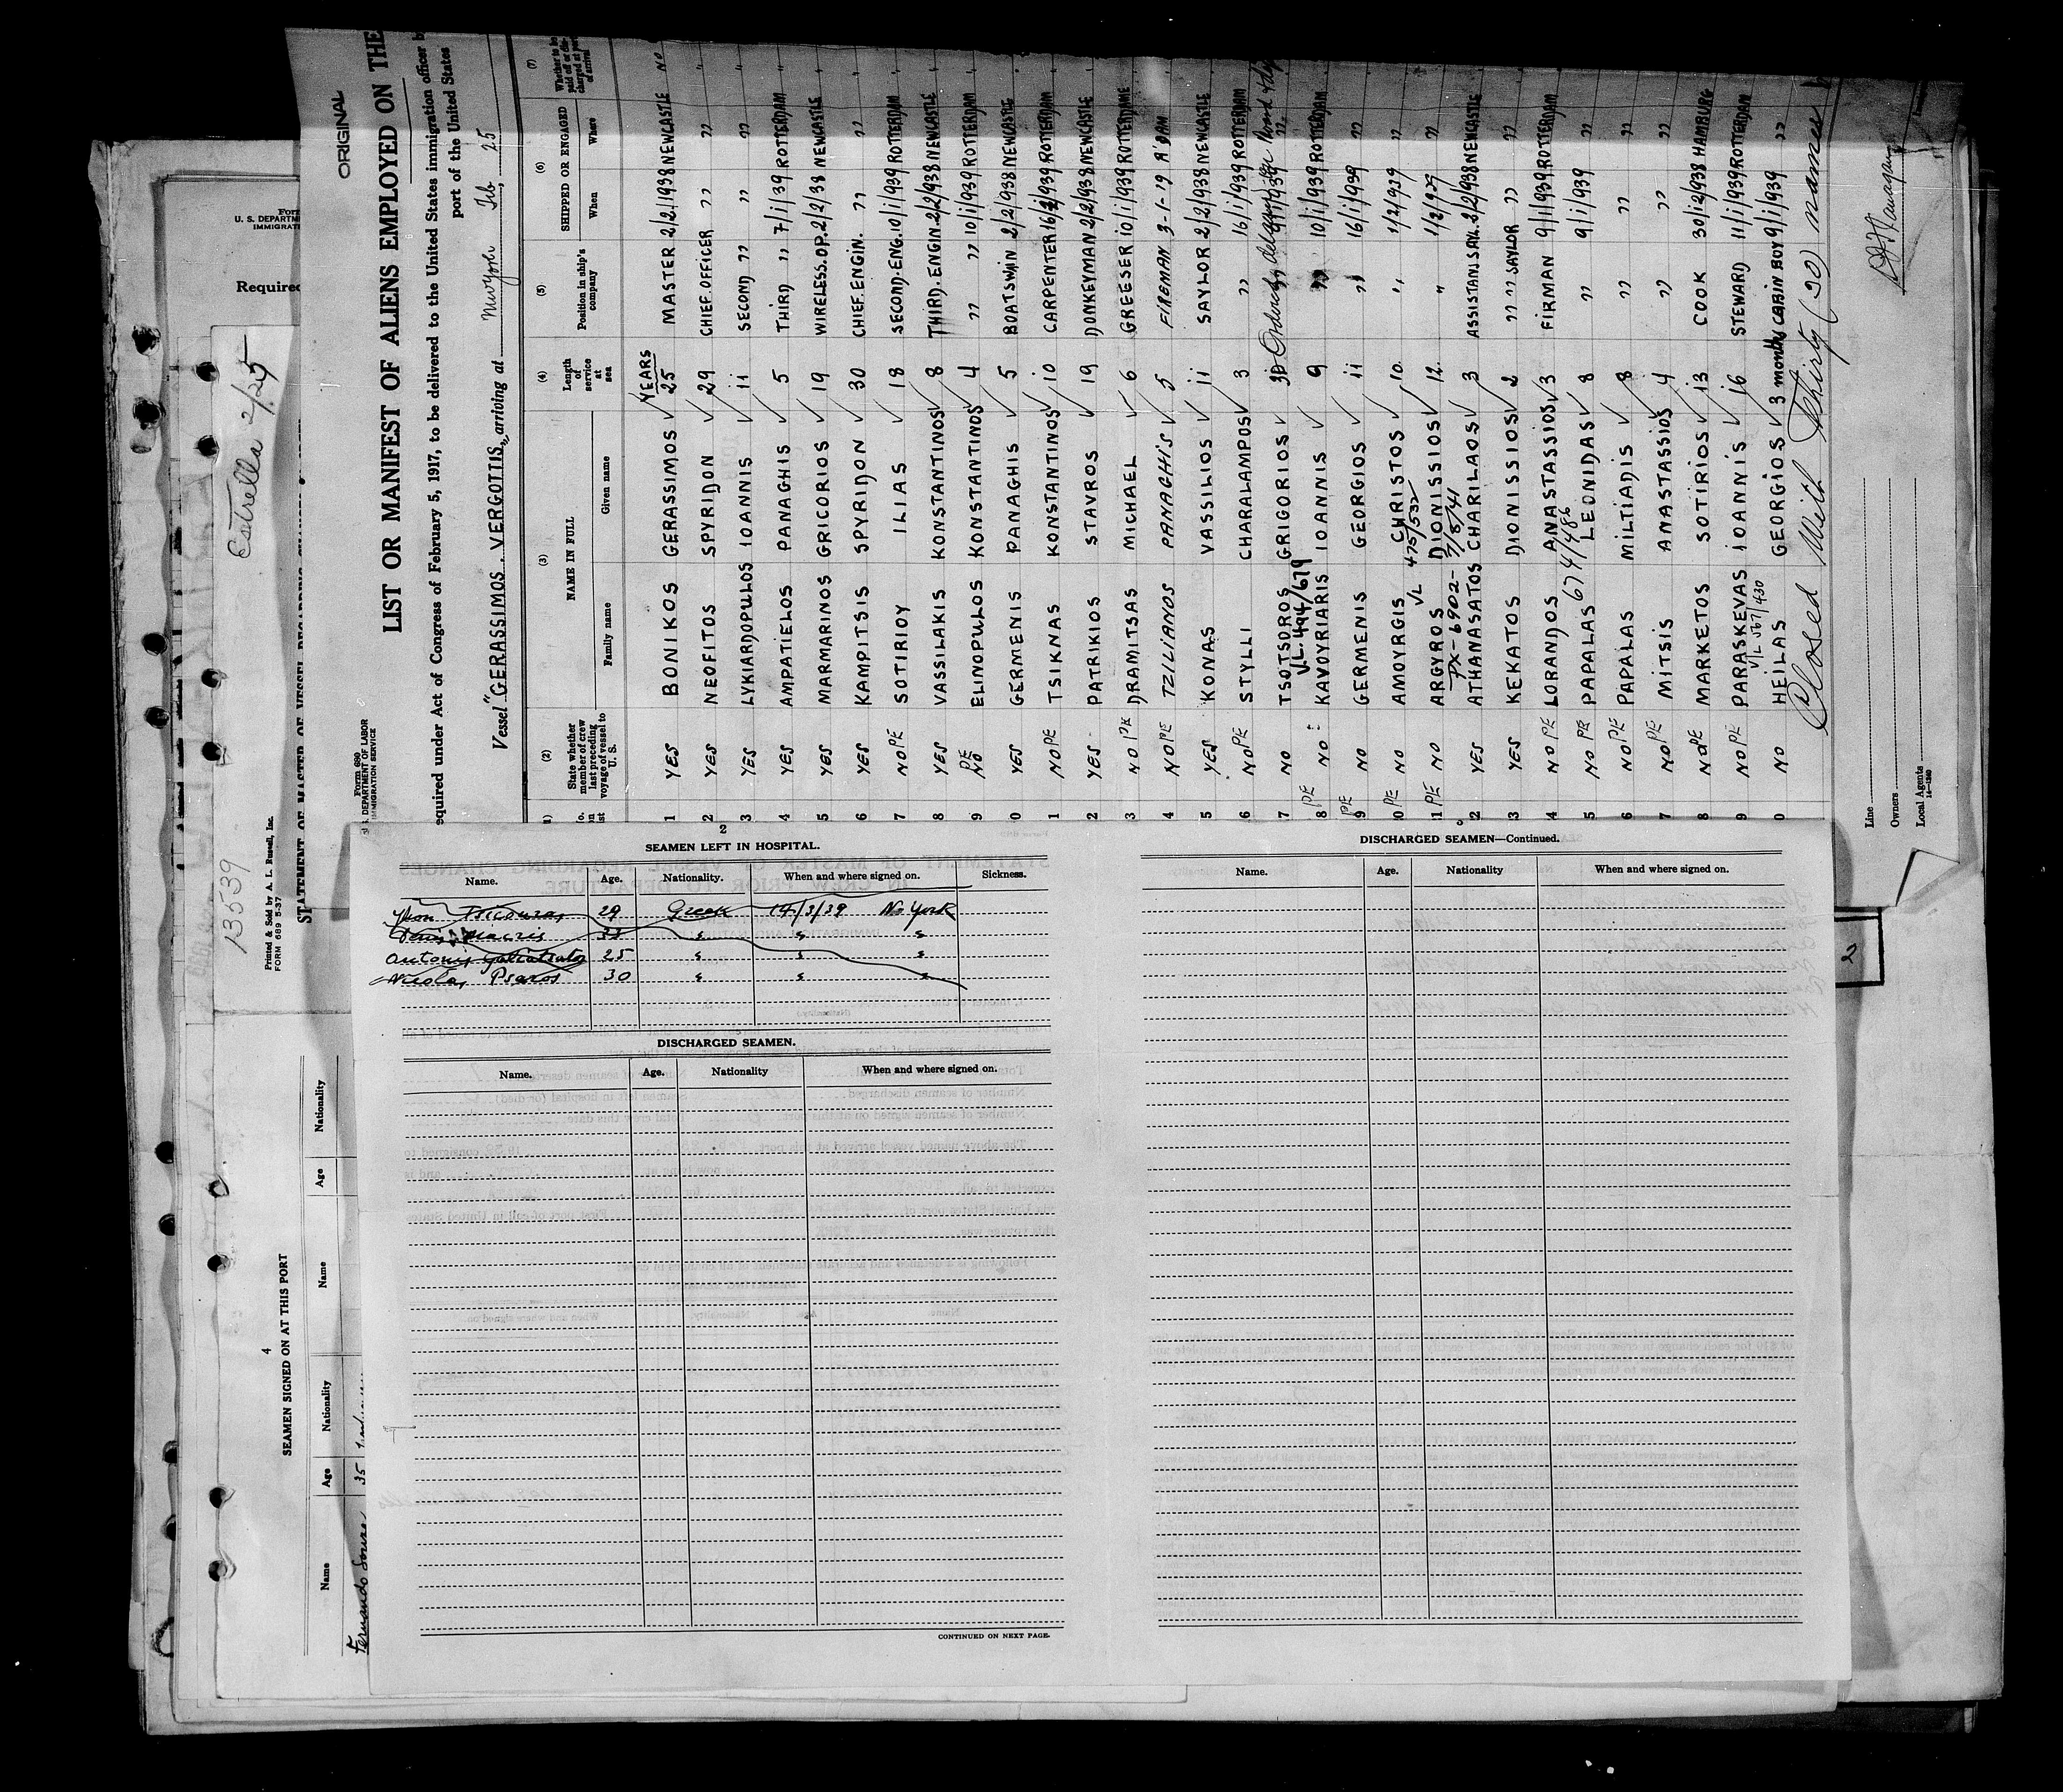 ORIGINAL
LIST OR MANIFEST OF ALIENS EMPLOYED ON THE
equired under Act of Congress of February 5, 1917, to be delivered to the United States immigration officer b
port of the United States
Vessel "GERASSIMOS. VERGOTTIS", arriving at New York Feb. 25
Form 680
U. S. DEPARTMENT OF LABOR
IMMIGRATION SERVICE
(2) (3) (4) (5) (6) (7)
State whether member of crew last preceding voyage of vessel to U. S.
NAME IN FULL
Family name Given name
Length of service at sea
Position in ship's company
SHIPPED OR ENGAGED
When Where
Whether to be paid off or discharged at port of arrival
YEARS
1 YES BONIKOS GERASSIMOS ✓ 25 MASTER 2/2/1938 NEWCASTLE NO
2 YES NEOFITOS SPYRIDON ✓ 29 CHIEF.OFFICER ,, ,, "
3 YES LYKIARDOPULOS IOANNIS ✓ 11 SECOND ,, ,, ,, "
4 YES AMPATIELOS PANAGHIS ✓ 5 THIRD ,, 7/1/39 ROTTERDAM "
5 YES MARMARINOS GRIGORIOS ✓ 19 WIRELESS.OP. 2/2/38 NEWCASTLE "
6 YES KAMPITSIS SPYRIDON ✓ 30 CHIEF.ENGIN. ,, ,,
7 NO PE SOTIRIOY ILIAS ✓ 18 SECOND.ENG. 10/1/939 ROTTERDAM
8 YES VASSILAKIS KONSTANTINOS ✓ 8 THIRD.ENGIN. 2/2/938 NEWCASTLE
9 PE NO ELINOPULOS KONSTANTINOS ✓ 4 ,, ,, 10/1/939 ROTTERDAM
0 YES GERMENIS PANAGHIS ✓ 5 BOATSWIN 2/2/938 NEWCASTLE
1 NO PE TSIKNAS KONSTANTINOS ✓ 10 CARPENTER 16/1/939 ROTERDAM
2 YES PATRIKIOS STAVROS ✓ 19 DONKEYMAN 2/2/938 NEWCASTLE
3 NO PE DRAMITSAS MICHAEL ✓ 6 GREESER 10/1/939 ROTTERDAME
4 NO PE TZILIANOS PANAGHIS ✓ 5 FIREMAN 3-1-19 R'DAM
5 YES KONAS VASSILIOS ✓ 11 SAYLOR 2/2/938 NEWCASTLE
6 NO PE STYLLI CHARALAMPOS ✓ 3 ,, 16/1/939 ROTTERDAM
7 NO TSOTSOROS GRIGORIOS ✓ 9/1/939 ,,
V.L. 494/679
8 PE NO KAVOYRIARIS IOANNIS ✓ 9 ,, 10/1/939 ROTTERDAM
9 PE NO GERMENIS GEORGIOS ✓ 11 ,, 16/1/939 ,,
0 PE NO AMOYRGIS CHRISTOS ✓ 10 ,, 1/2/939 ,,
VL 475/532
1 PE NO ARGYROS DIONISSIOS ✓ 12 " 1/2/939 ,,
PX-6902-7/8/41
2 YES ATHANASATOS CHARILAOS ✓ 3 ASSISTAN SAYL. 2/2/938 NEWCASTLE
3 YES KEKATOS DIONISSIOS ✓ 2 ,, ,, SAYLOR ,, ,,
4 NO PE LORANDOS ANASTASSIOS ✓ 3 FIRMAN 9/1/939 ROTTERDAM
674/486
5 NO PE PAPALAS LEONIDAS ✓ 8 ,, 9/1/939 ,,
6 NO PE PAPALAS MILTIADIS ✓ 8 ,, ,, ,,
7 NO PE MITSIS ANASTASSIOS 4 ,, ,, ,,
8 NO PE MARKETOS SOTIRIOS ✓ 13 COOK 30/2/938 HAMBURG
9 NO PE PARASKEVAS IOANNIS ✓ 16 STEWARD 11/1/939 ROTTERDAN
V/L 567/430
0 NO HEILAS GEORGIOS ✓ 3 months CABIN BOY 9/1/939 ,,
Closed With Thirty (30) names
Line
Owners
Local Agents
14—1240
Form
U. S. DEPARTM
IMMIGRATI
Required
Estrella 2/25
13539
Printed & Sold by A. L. Russell, Inc.
FORM 689 5-37
STATEMENT OF MASTER OF VESSEL REGARDING CHANGES
4
SEAMEN SIGNED ON AT THIS PORT
Name Age Nationality Name Age Nationality
Fernando Sousa 35
2
SEAMEN LEFT IN HOSPITAL.
Name. Age. Nationality. When and where signed on. Sickness.
29 Greek 14/3/39 N. York
33 " " "
Antonis 25 " " "
Nicolas Psaros 30 " " "
DISCHARGED SEAMEN.
Name. Age. Nationality When and where signed on.
CONTINUED ON NEXT PAGE.
DISCHARGED SEAMEN—Continued.
Name. Age. Nationality When and where signed on.
2